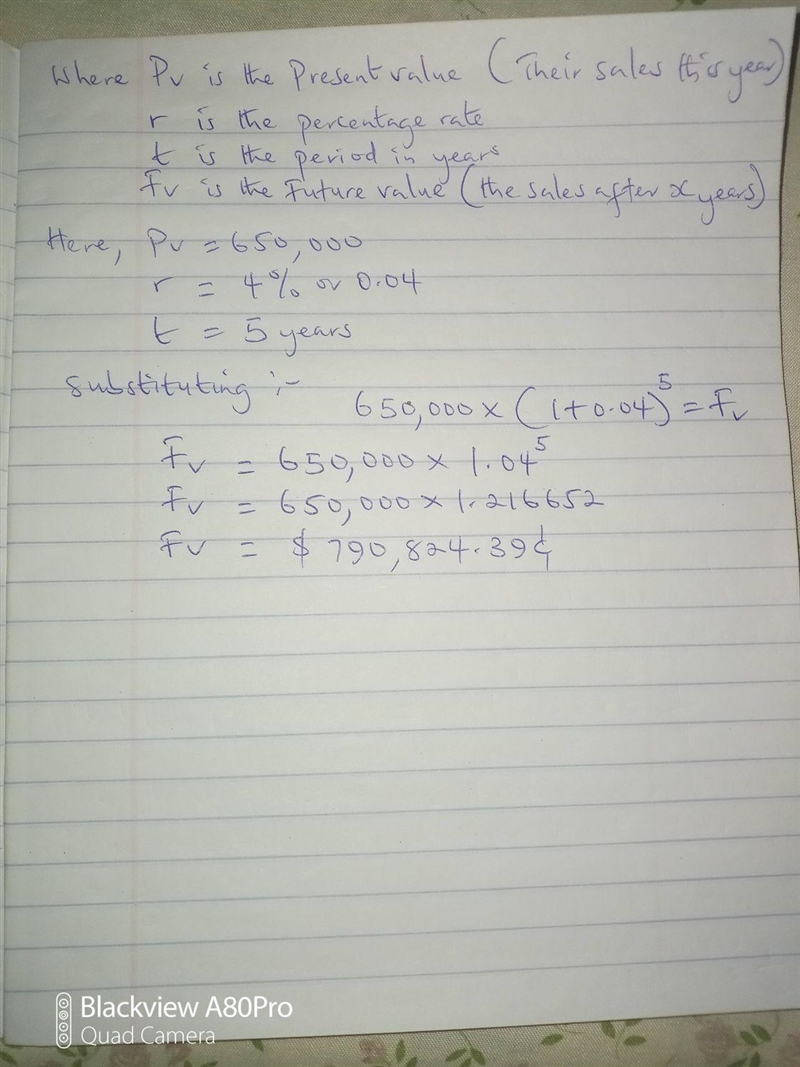 Where Pv is the Present value (Their sales this year)
r is the percentage rate
t is the period in years
Fv is the Future value (the sales after x years)
Here, Pv = 650,000
r = 4% or 0.04
t = 5 years
Substituting :-
650,000 × (1+0.04)⁵ = Fv
Fv = 650,000 × 1.04⁵
Fv = 650,000 × 1.216652
Fv = $ 790,824.39¢
Blackview A80Pro
Quad Camera